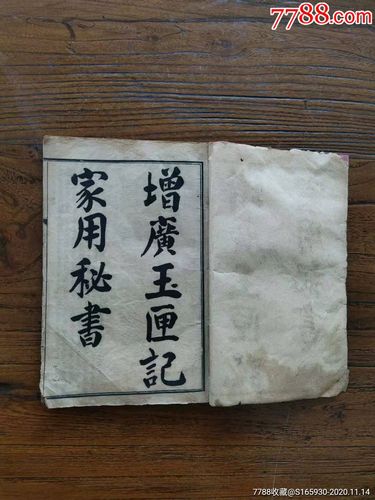 7788.com
增廣玉匣記
家用秘書
7788收藏@S165930-2020.11.14